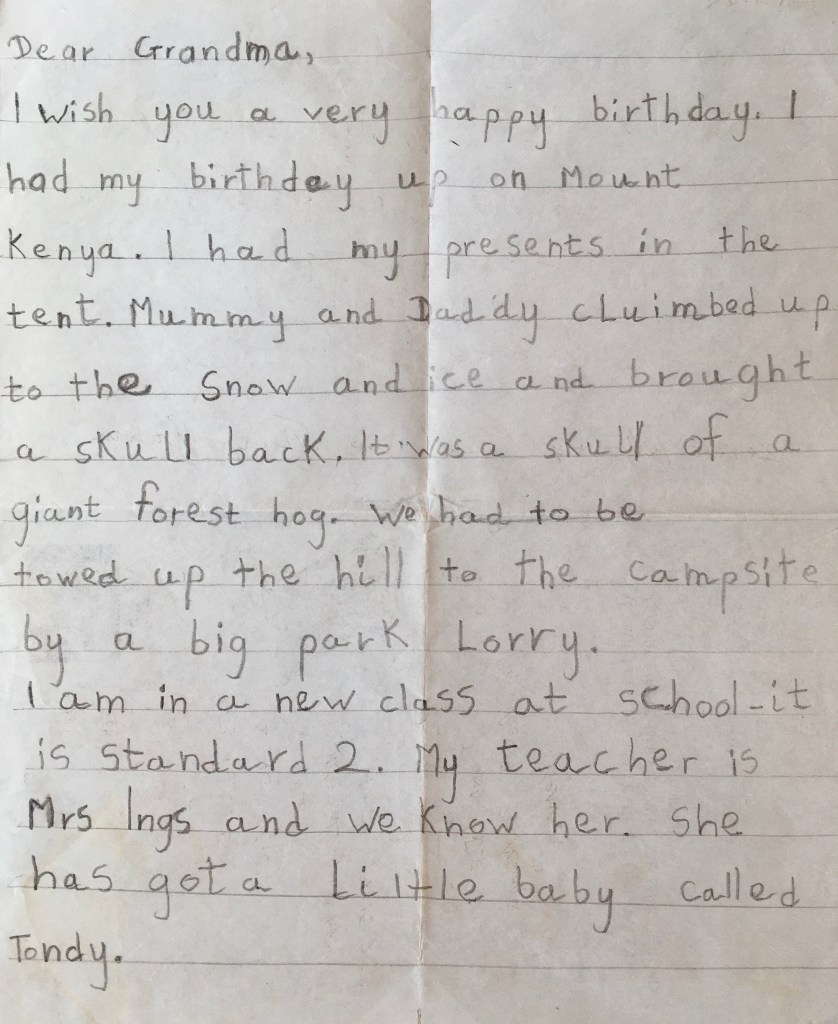 Dear Grandma,
I wish you a very happy birthday. I
had my birthday up on Mount
Kenya. I had my presents in the
tent. Mummy and Daddy cluimbed up
to the snow and ice and brought
a skull back. It was a skull of a
giant forest hog. We had to be
towed up the hill to the campsite
by a big park Lorry.
I am in a new class at school-it
is standard 2. My teacher is
Mrs Ings and we know her. She
has got a little baby called
Tondy.